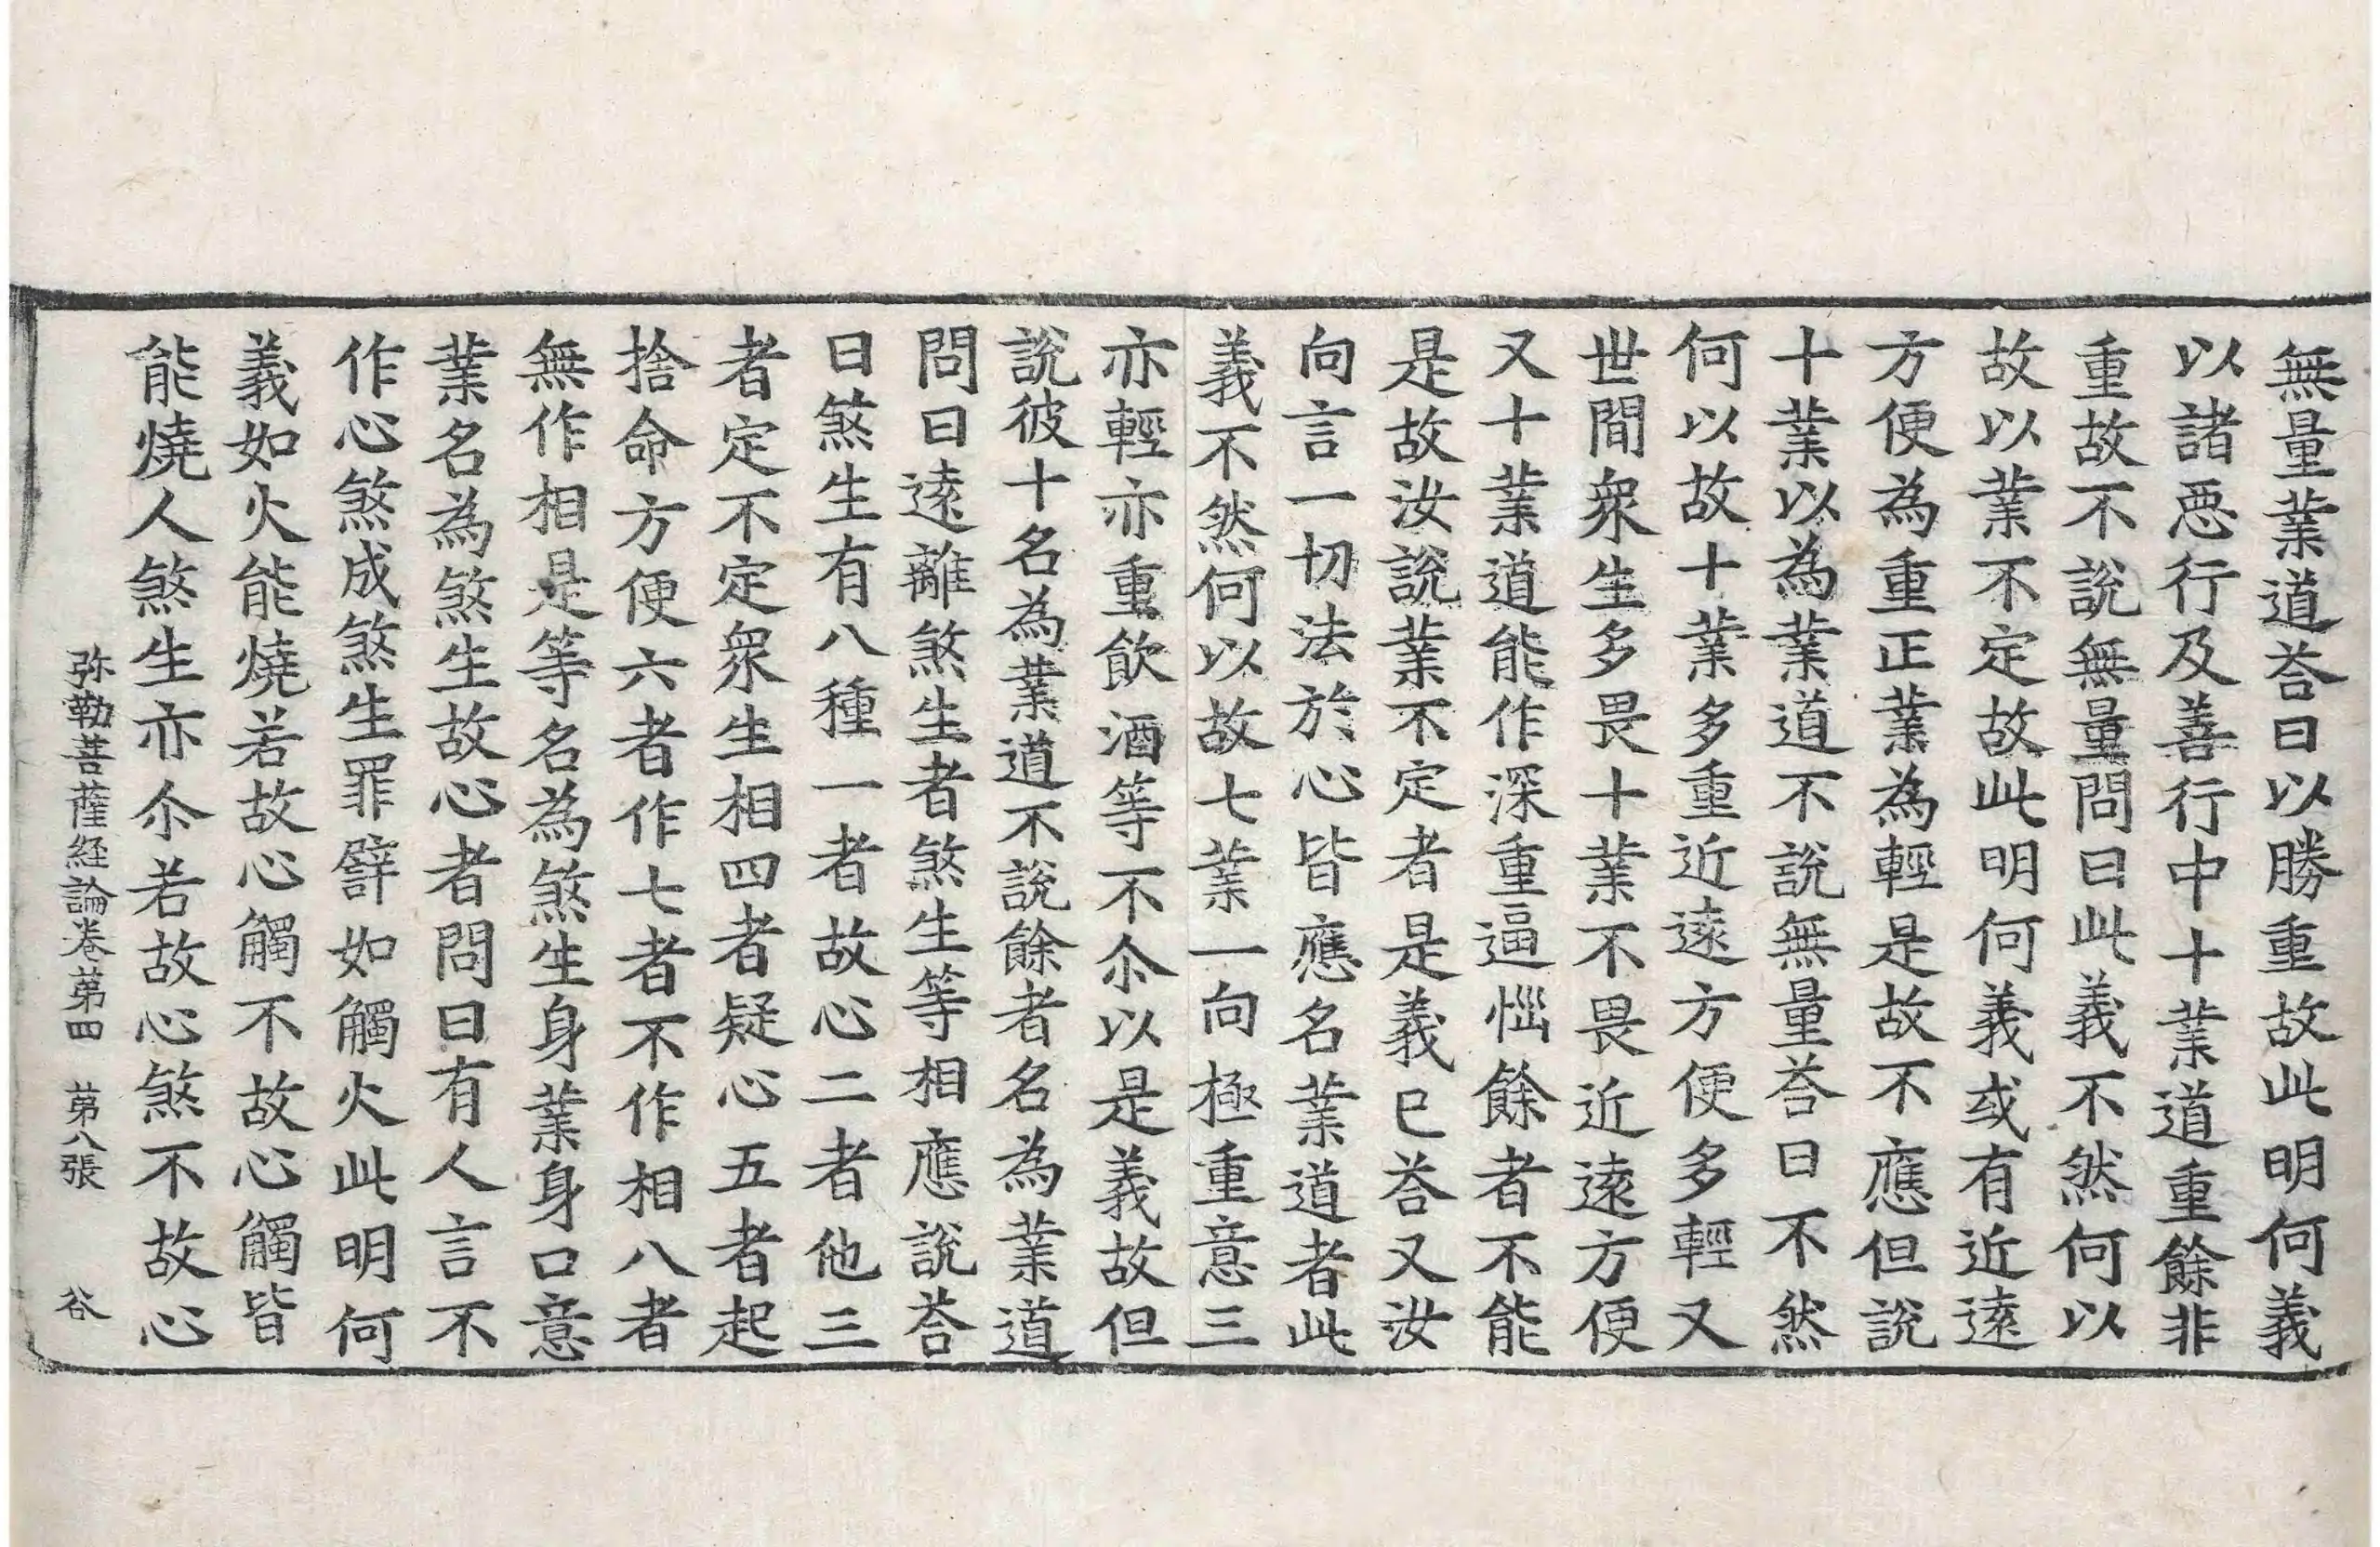 無量業道荅曰以勝重故此明何義
以諸惡行及善行中十業道重餘非
重故不說無量問曰此義不然何以
故以業不定故此明何義或有近遠
方便為重正業為輕是故不應但說
十業以為業道不說無量荅曰不然
何以故十業多重近遠方便多輕又
世間眾生多畏十業不畏近遠方便
又十業道能作深重逼惱餘者不能
是故汝說業不定者是義已荅又汝
向言一切法於心皆應名業道者此
義不然何以故七業一向極重意三
亦輕亦重飲酒等不尒以是義故但
說彼十名為業道不說餘者名為業道
問曰遠離煞生者煞生等相應說荅
曰煞生有八種一者故心二者他三
者定不定眾生相四者疑心五者起
捨命方便六者作七者不作相八者
無作相是等名為煞生身業身口意
業名為煞生故心者問曰有人言不
作心煞成煞生罪譬如觸火此明何
義如火能燒若故心觸不故心觸皆
能燒人煞生亦尒若故心煞不故心
弥勒菩薩経論卷苐四 苐八張 谷